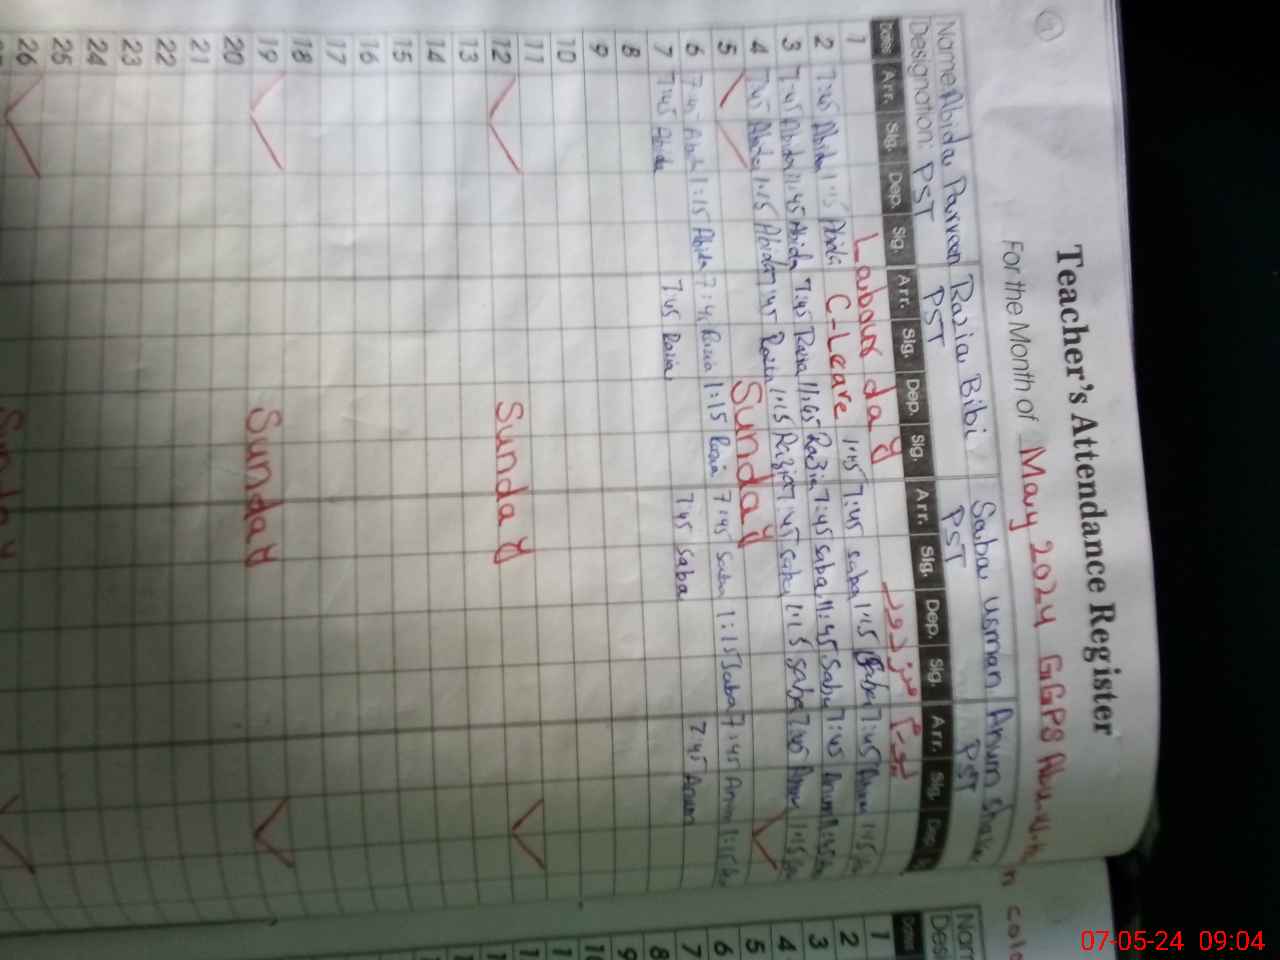 Teacher's Attendance Register
For the Month of May 2024 GGPS
Name: Abida Parveen Razia Bibi Saba usman Anum
Designation: PST PST PST PST
Dates Arr. Sig. Dep. Sig. Arr. Sig. Dep. Sig. Arr. Sig. Dep. Sig. Arr. Sig. Dep.
1 Labour day یوم مزدور
2 7:45 Abida 1:15 Abida C-Leave 1:15 7:45 saba 1:15 Saba 7:45 Anum 1:15
3 7:45 Abida 11:45 Abida 7:45 Razia 11:45 Razia 7:45 saba 11:45 Saba 7:45 Anum
4 7:45 Abida 1:15 Abida 7:45 Razia 1:15 Razia 7:45 saba 1:15 saba 7:45 Anum 1:15
5 Sunday
6 7:45 Abida 1:15 Abida 7:45 Razia 1:15 Razia 7:45 Saba 1:15 Saba 7:45 Anum 1:15
7 7:45 Abida 7:45 Razia 7:45 Saba 7:45 Anum
8
9
10
11
12 Sunday
13
14
15
16
17
18
19 Sunday
20
21
22
23
24
25
26 Sunday
Dates
1
2
3
4
5
6
7
8
9
07-05-24 09:04